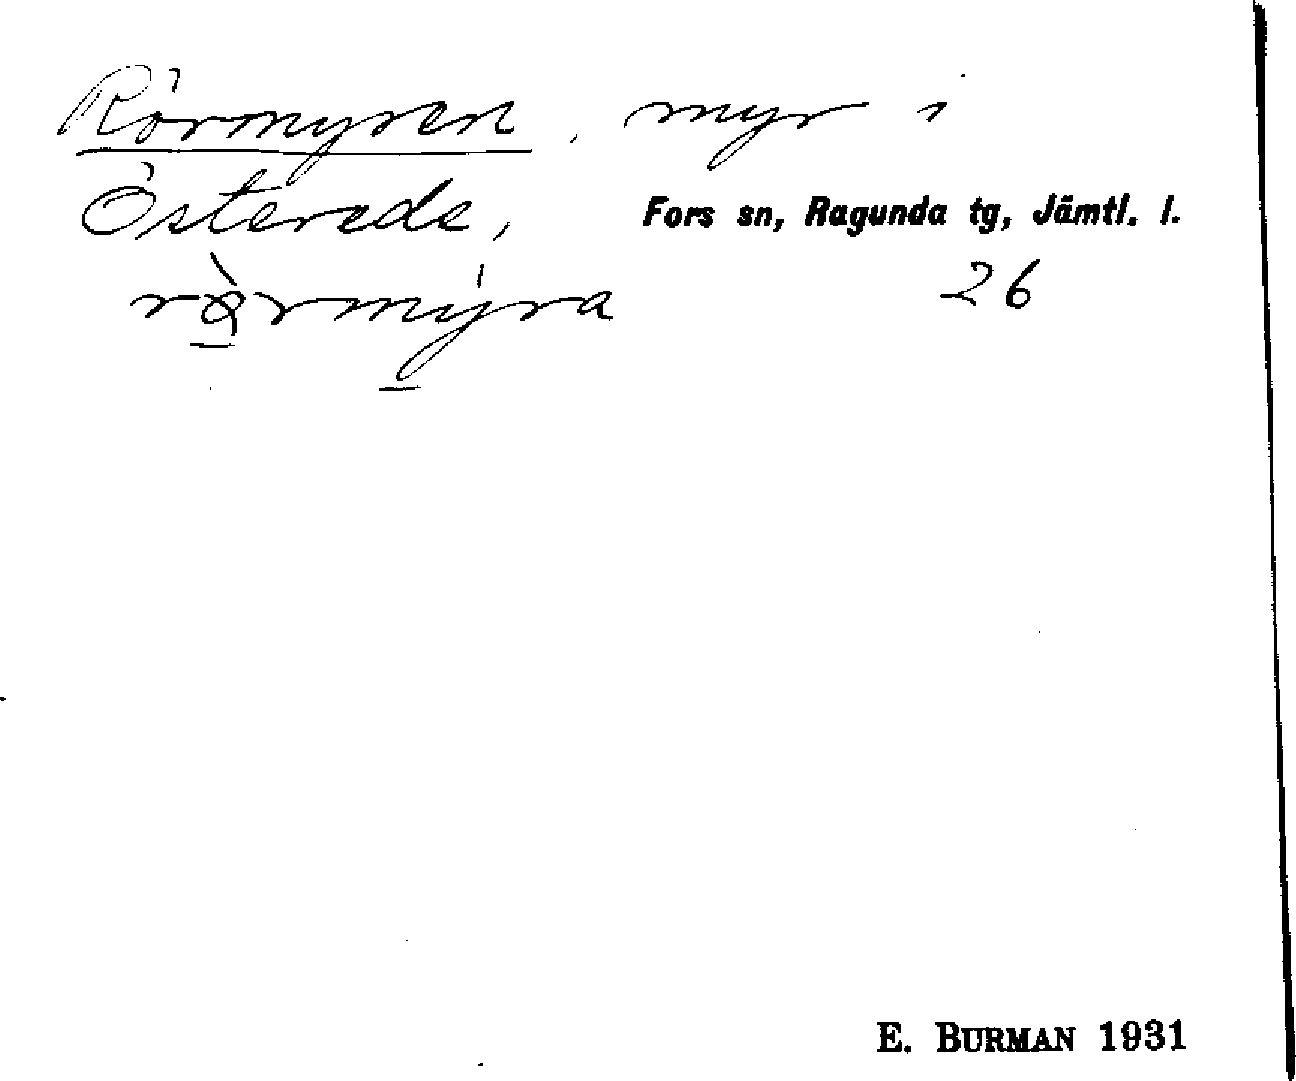 Rörmyren, myr i
Österede, Fors sn, Ragunda tg, Jämtl. l.
26
E. BURMAN 1931